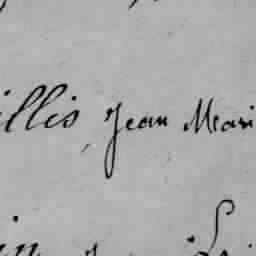 illis, Jean Mari
in